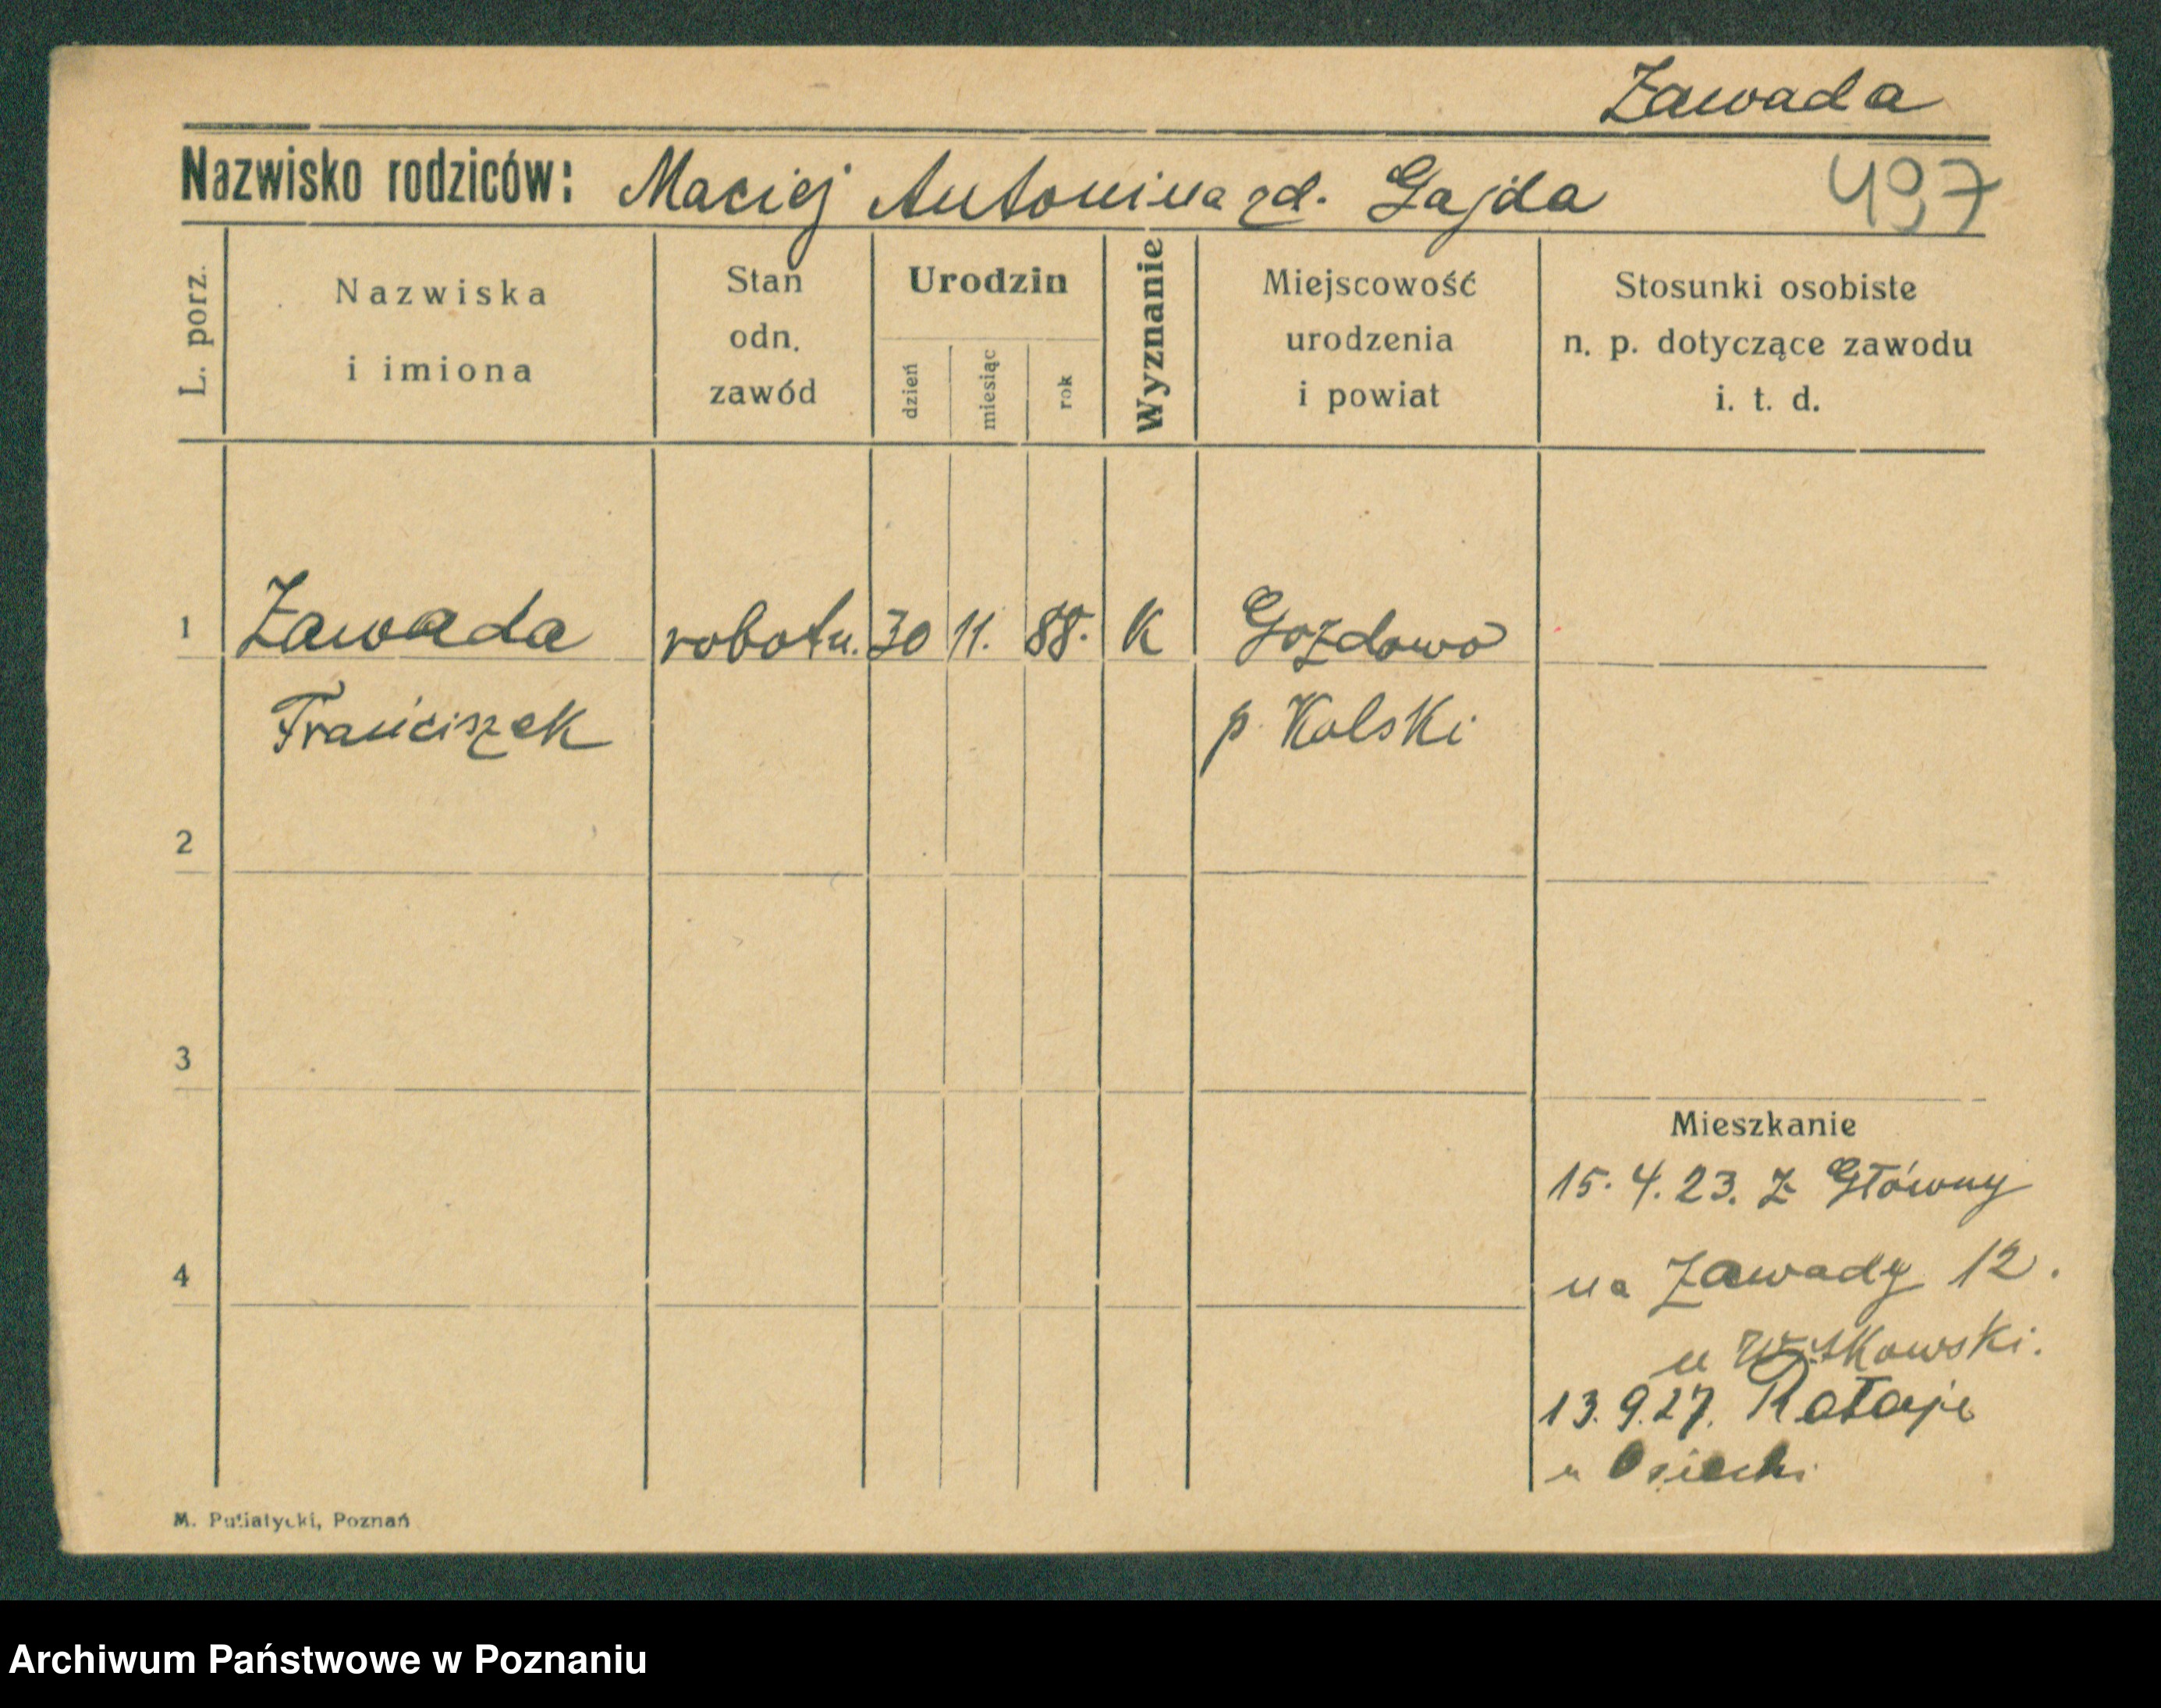 Zawada
Nazwisko rodziców: Maciej Antonina zd. Gajda
497
L. porz.
Nazwiska
i imiona
Stan
odn.
zawód
Urodzin
dzień
miesiąc
rok
Wyznanie
Miejscowość
urodzenia
i powiat
Stosunki osobiste
n. p. dotyczące zawodu
i. t. d.
1 Zawada robotn. 30 11. 88. K Gozdowo
Franciszek p. Kolski
2
3
Mieszkanie
15. 4. 23. z Główny
4 na Zawady 12.
u Witkowski.
13. 9. 27. Rataje
u Osiecki
M. Putiatycki, Poznań
Archiwum Państwowe w Poznaniu